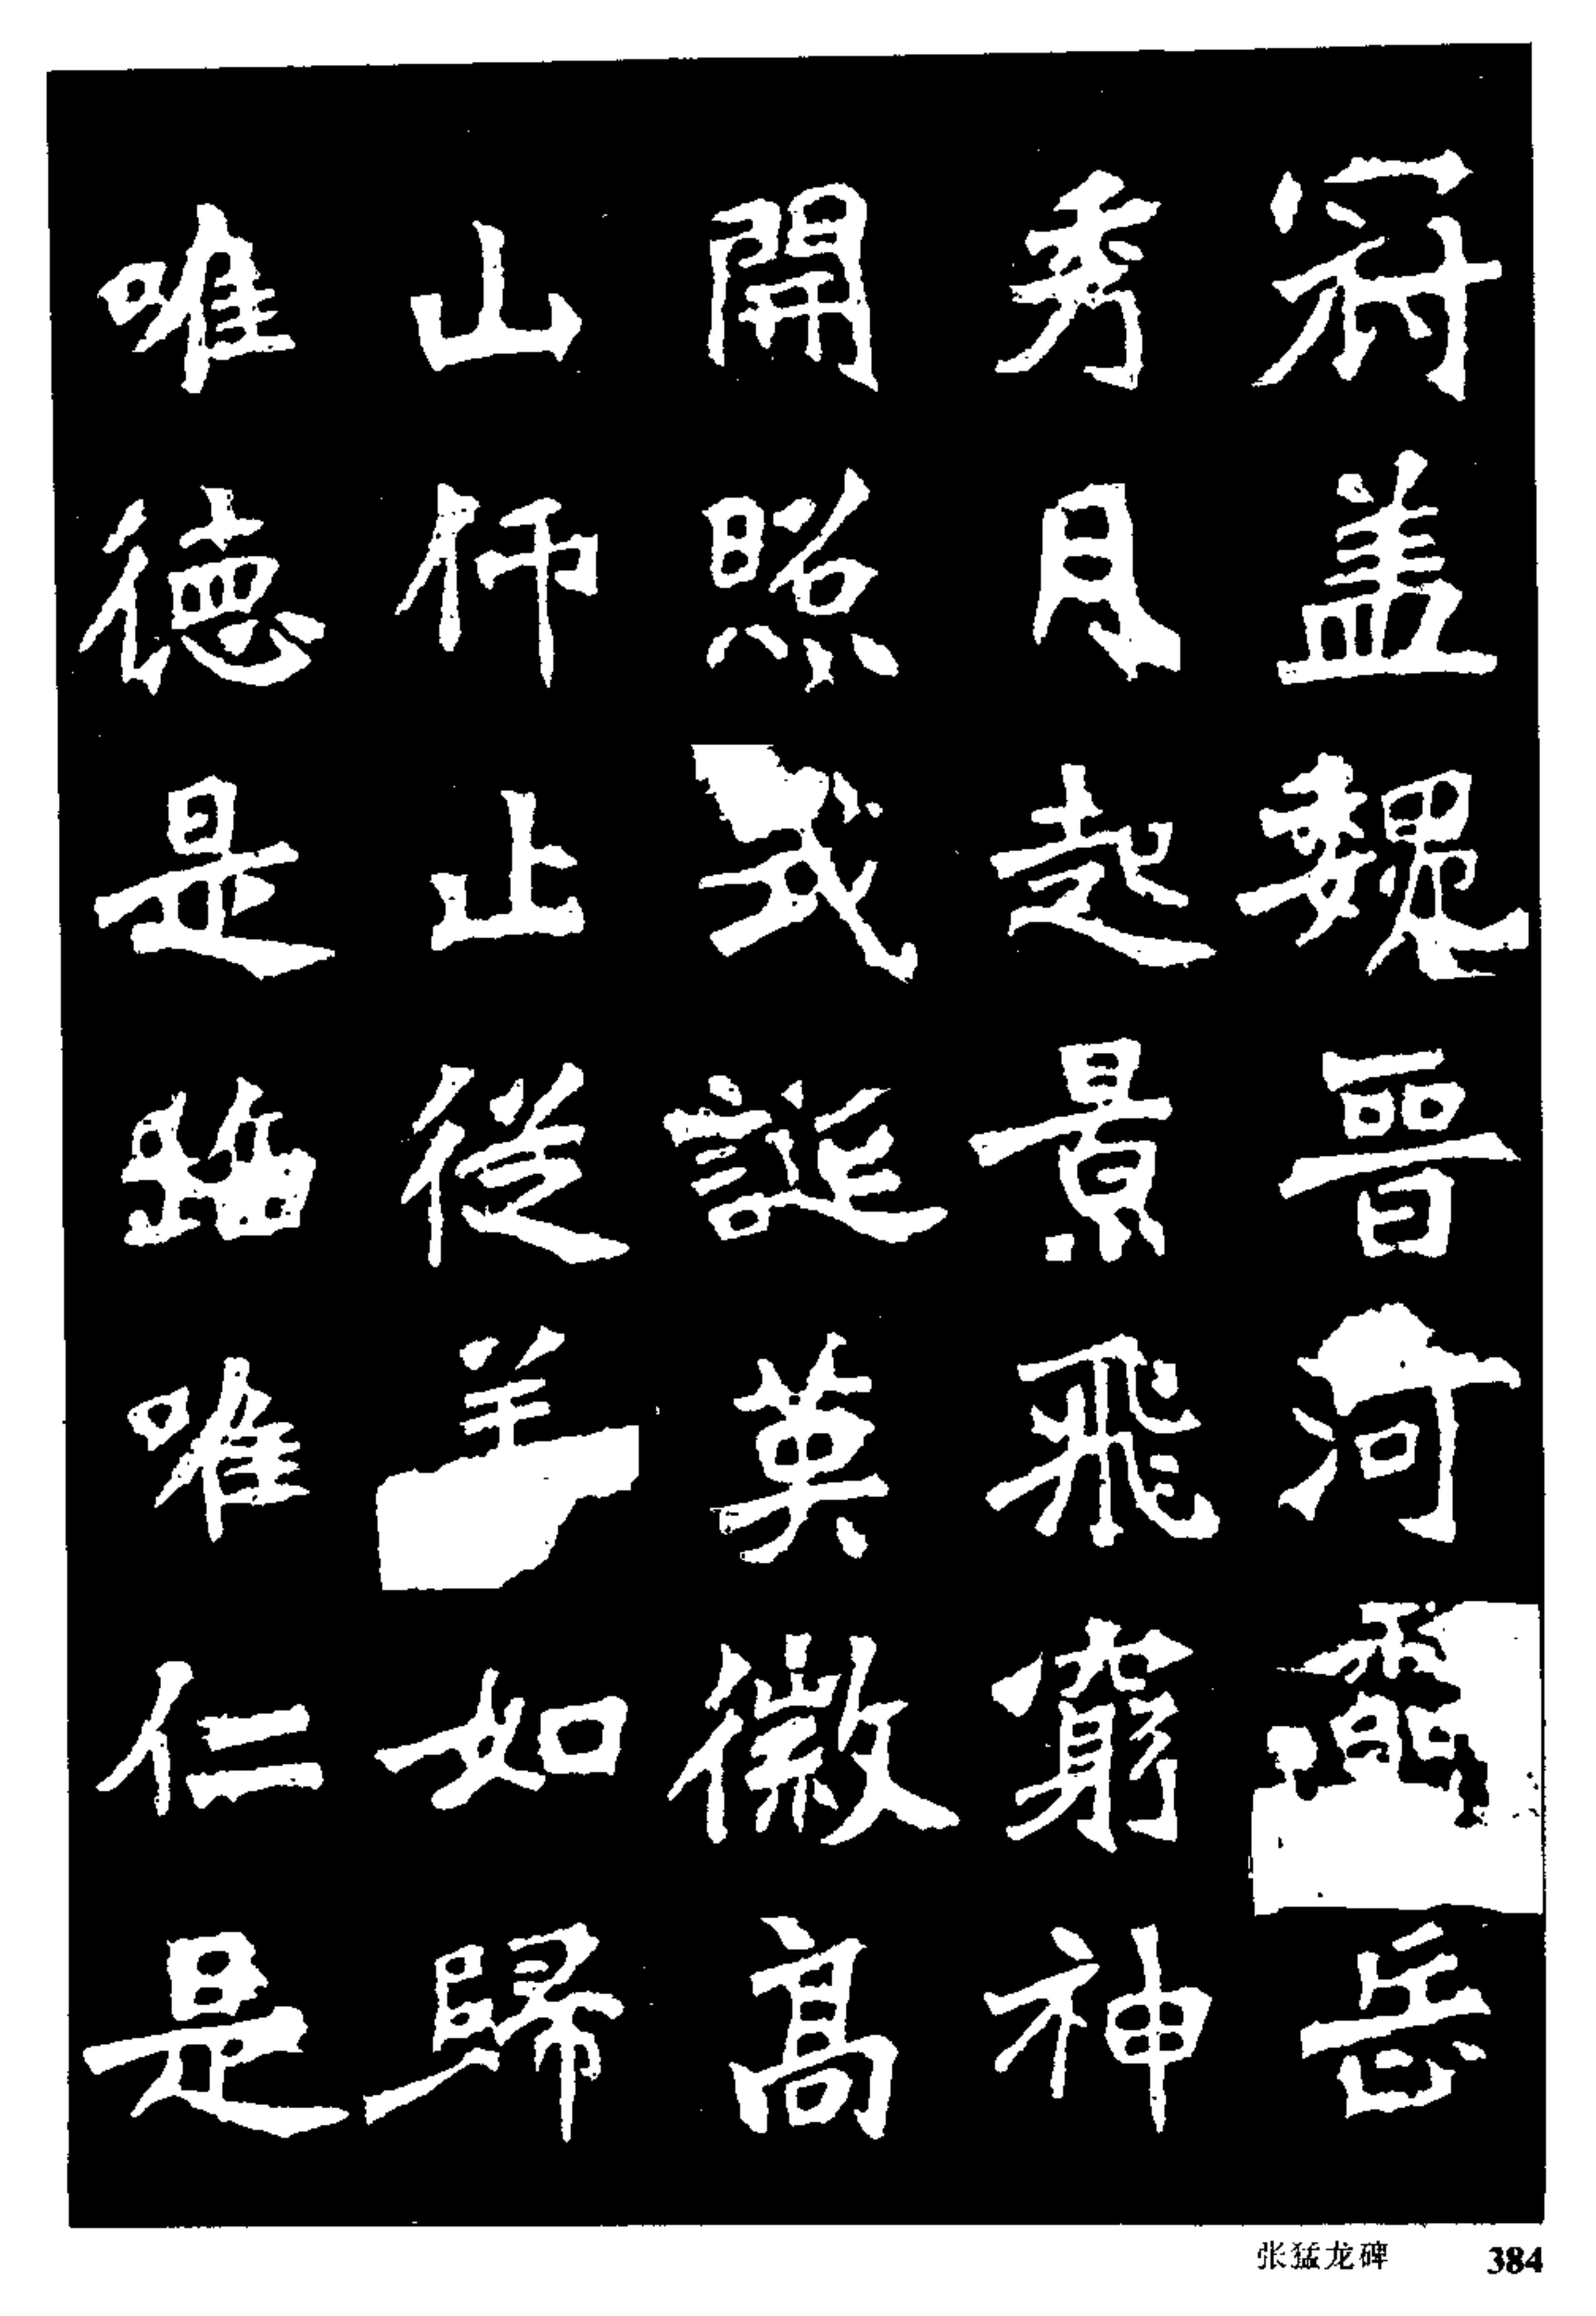 冠盖魏晉河靈岳
秀月起景飛窮神
開照式誕英徽高
山仰止從善如歸
唯德是蹈唯仁是
张猛龙碑 384